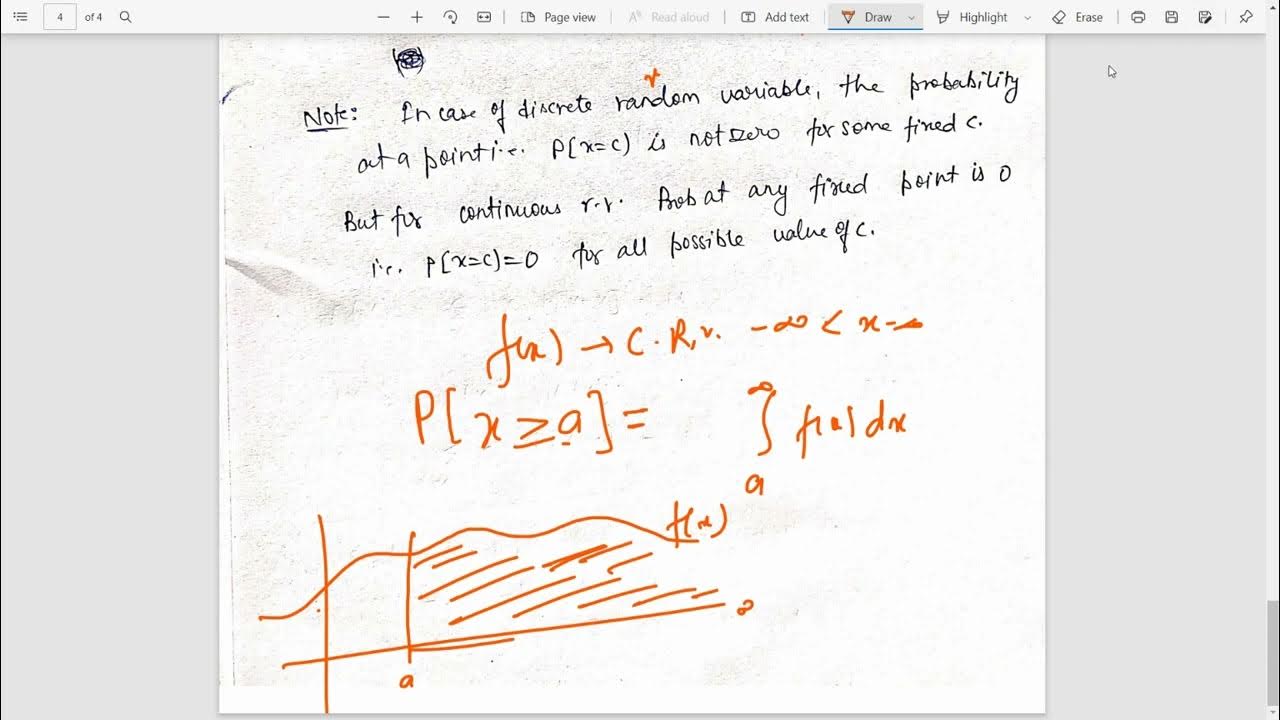 4 of 4 Page view Read aloud Add text Draw Highlight Erase
Note: In case of discrete random variable, the probability
at a point i.e. P[x=c) is not zero for some fixed c.
But for continuous r.v. Prob at any fixed point is 0
i.e. P[x=c)=0 for all possible value of c.
f(x) → C.R.v. -∞ < x
P[x ≥ a] = ∫ f(x) dx
∞
a
f(x)
∞
a